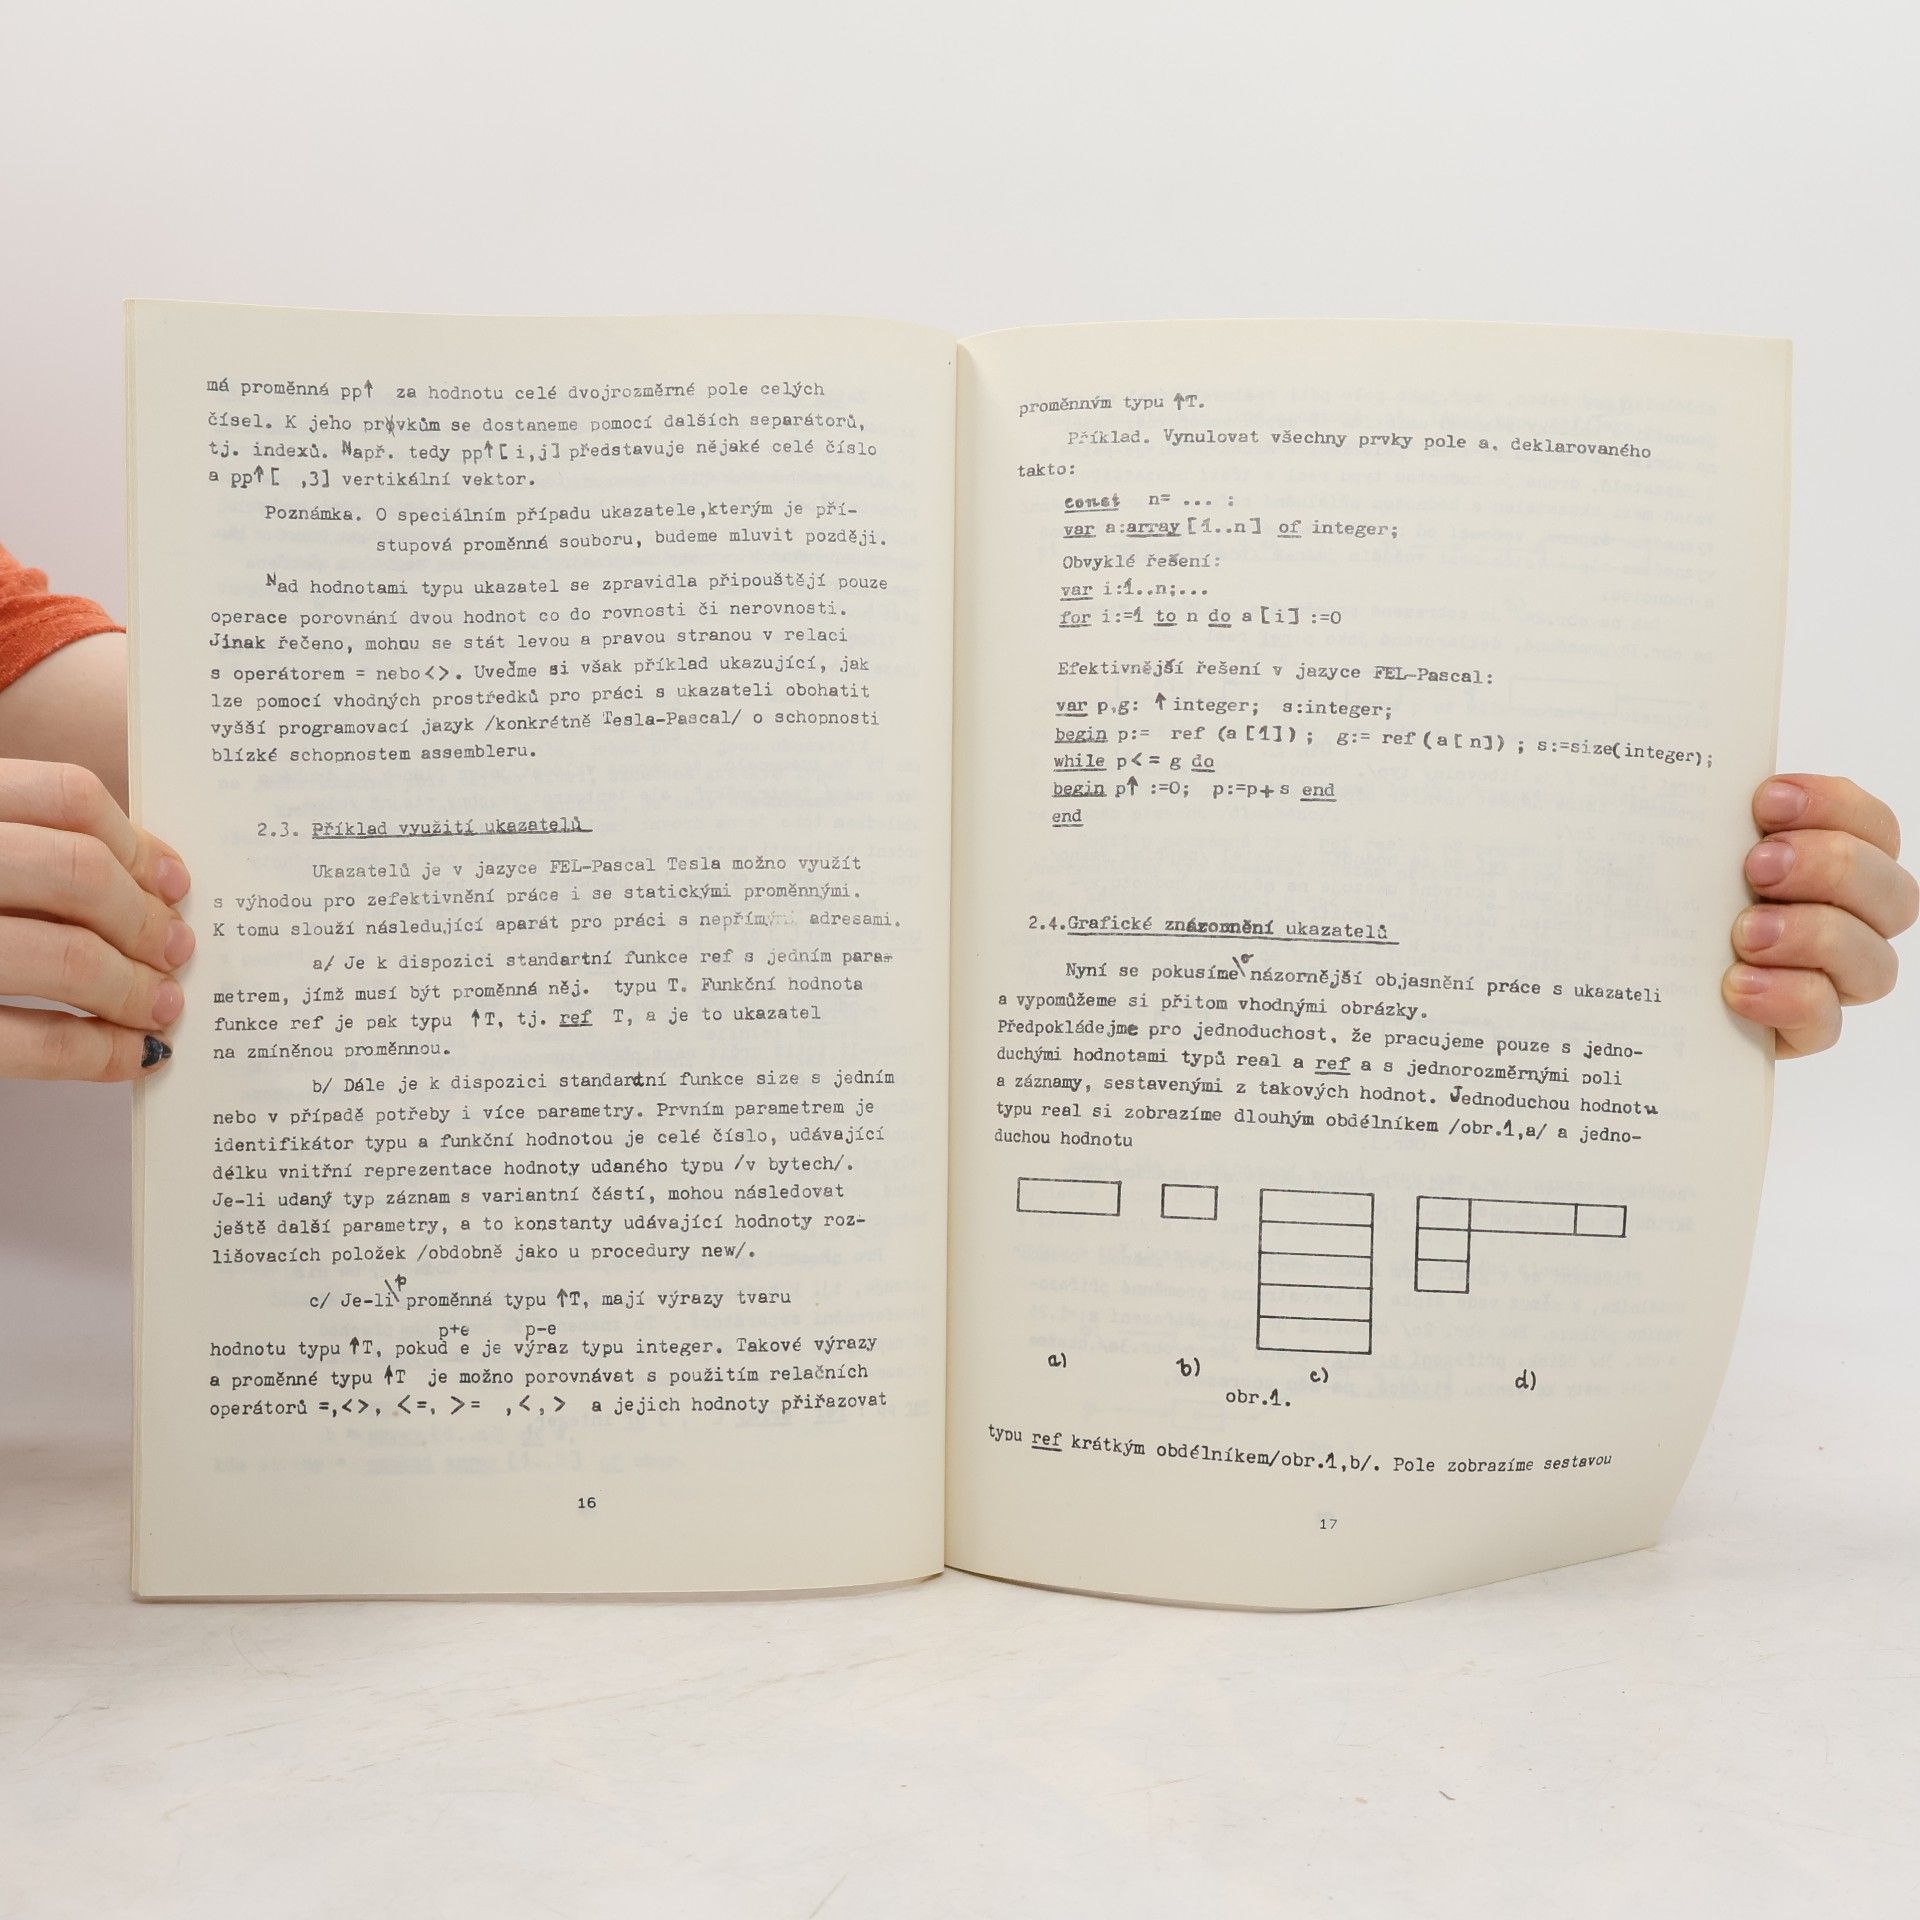 má proměnná pp↑ za hodnotu celé dvojrozměrné pole celých
čísel. K jeho prvkům se dostaneme pomocí dalších separátorů,
tj. indexů. Např. tedy pp↑[i,j] představuje nějaké celé číslo
a pp↑[ ,3] vertikální vektor.
Poznámka. O speciálním případu ukazatele,kterým je pří-
stupová proměnná souboru, budeme mluvit později.
Nad hodnotami typu ukazatel se zpravidla připouštějí pouze
operace porovnání dvou hodnot co do rovnosti či nerovnosti.
Jinak řečeno, mohou se stát levou a pravou stranou v relaci
s operátorem = nebo<>. Uveďme si však příklad ukazující, jak
lze pomocí vhodných prostředků pro práci s ukazateli obohatit
vyšší programovací jazyk /konkrétně Tesla-Pascal/ o schopnosti
blízké schopnostem assembleru.
2.3. Příklad využití ukazatelů
Ukazatelů je v jazyce FEL-Pascal Tesla možno využít
s výhodou pro zefektivnění práce i se statickými proměnnými.
K tomu slouží následující aparát pro práci s nepřímými adresami.
a/ Je k dispozici standartní funkce ref s jedním para-
metrem, jímž musí být proměnná něj. typu T. Funkční hodnota
funkce ref je pak typu ↑T, tj. ref T, a je to ukazatel
na zmíněnou proměnnou.
b/ Dále je k dispozici standartní funkce size s jedním
nebo v případě potřeby i více parametry. Prvním parametrem je
identifikátor typu a funkční hodnotou je celé číslo, udávající
délku vnitřní reprezentace hodnoty udaného typu /v bytech/.
Je-li udaný typ záznam s variantní částí, mohou následovat
ještě další parametry, a to konstanty udávající hodnoty roz-
lišovacích položek /obdobně jako u procedury new/.
c/ Je-li p proměnná typu ↑T, mají výrazy tvaru
p+e p-e
hodnotu typu ↑T, pokud e je výraz typu integer. Takové výrazy
a proměnné typu ↑T je možno porovnávat s použitím relačních
operátorů =,<>, <=, >= ,<,> a jejich hodnoty přiřazovat
16
proměnným typu ↑T.
Příklad. Vynulovat všechny prvky pole a, deklarovaného
takto:
const n= ... ;
var a:array [1..n] of integer;
Obvyklé řešení:
var i:1..n;...
for i:=1 to n do a[i] :=0
Efektivnější řešení v jazyce FEL-Pascal:
var p,g: ↑integer; s:integer;
begin p:= ref (a[1]); g:= ref(a[n]) ; s:=size(integer);
while p<= g do
begin p↑ :=0; p:=p+s end
end
2.4.Grafické znázornění ukazatelů
Nyní se pokusíme o názornější objasnění práce s ukazateli
a vypomůžeme si přitom vhodnými obrázky.
Předpokládejme pro jednoduchost, že pracujeme pouze s jedno-
duchými hodnotami typů real a ref a s jednorozměrnými poli
a záznamy, sestavenými z takových hodnot. Jednoduchou hodnotu
typu real si zobrazíme dlouhým obdélníkem /obr.1,a/ a jedno-
duchou hodnotu
a) b) c) d)
obr.1.
typu ref krátkým obdélníkem/obr.1,b/. Pole zobrazíme sestavou
17